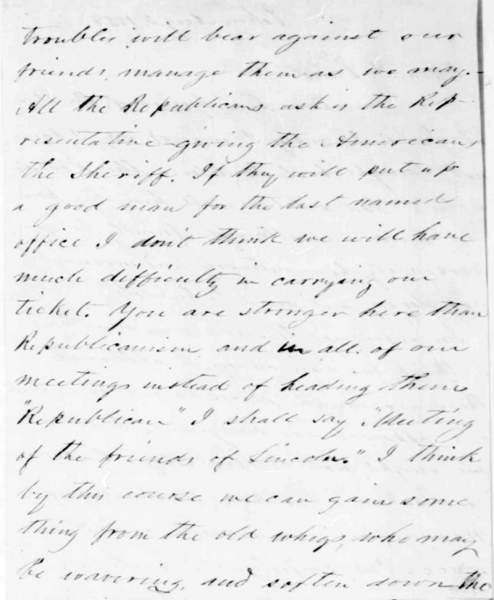 troubles will bear against our
friends, manage them as we may.-
All the Republicans ask is the Rep-
resentative giving the Americans
the Sheriff. If they will put up
a good man for the last named
office I don't think we will have
much difficulty in carrying our
ticket. You are stronger here than
Republicanism and in all of our
meetings instead of heading them
"Republican" I shall say "Meeting
of the friends of Lincoln." I think
by this course we can gain some
thing from the old whigs, who may
be wavering, and soften down the